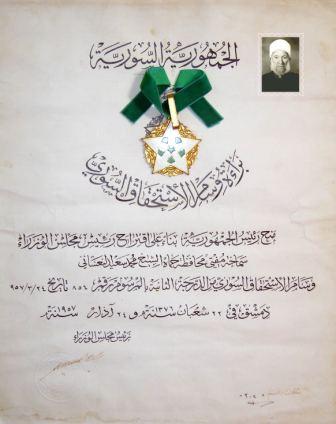 الجمهورية السورية
براءة وسام الاستحقاق السوري
منح رئيس الجمهورية بناء على اقتراح رئيس مجلس الوزراء
سماحة مفتي محافظة حماه الشيخ محمد سعيد النعساني
وسام الاستحقاق السوري من الدرجة الثانية بالمرسوم رقم ٨٥٤ تاريخ ٩٥٧/٣/٢٤
دمشق في ٢٢ شعبان سنة ١٣٧٦ و ٢٤ آذار سنة ١٩٥٧
رئيس مجلس الوزراء